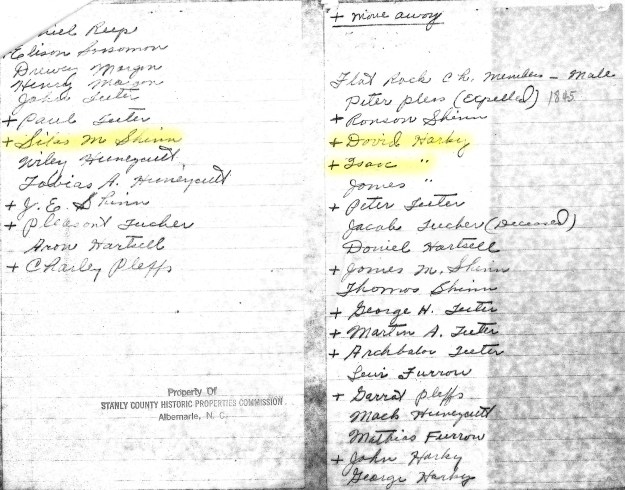 Reep
Elison Sossomon
Drewey Morgan
Henry Mason
John Teeter
+ Paul Teeter
+ Silas M Shinn
Wiley Huneycutt
Tobias A. Huneycutt
+ J. E. Shinn
+ Pleasant Tucker
Aron Hartsell
+ Charley Pleffs
Property Of
STANLY COUNTY HISTORIC PROPERTIES COMMISSION
Albemarle, N. C.
+ move away
Flat Rock Ch. Members – Male
Peter Pless (Expelled) 1845
+ Ronson Shinn
+ David Harky
+ Isaac "
James "
+ Peter Teeter
Jacob Tucker (Deceased)
Daniel Hartsell
+ James M. Shinn
Thomas Shinn
+ George H. Teeter
+ Martin A. Teeter
+ Archbalor Teeter
Levi Furrow
+ Garrat Pleffs
Mack Huneycutt
Mathias Furrow
+ John Harky
George Harky